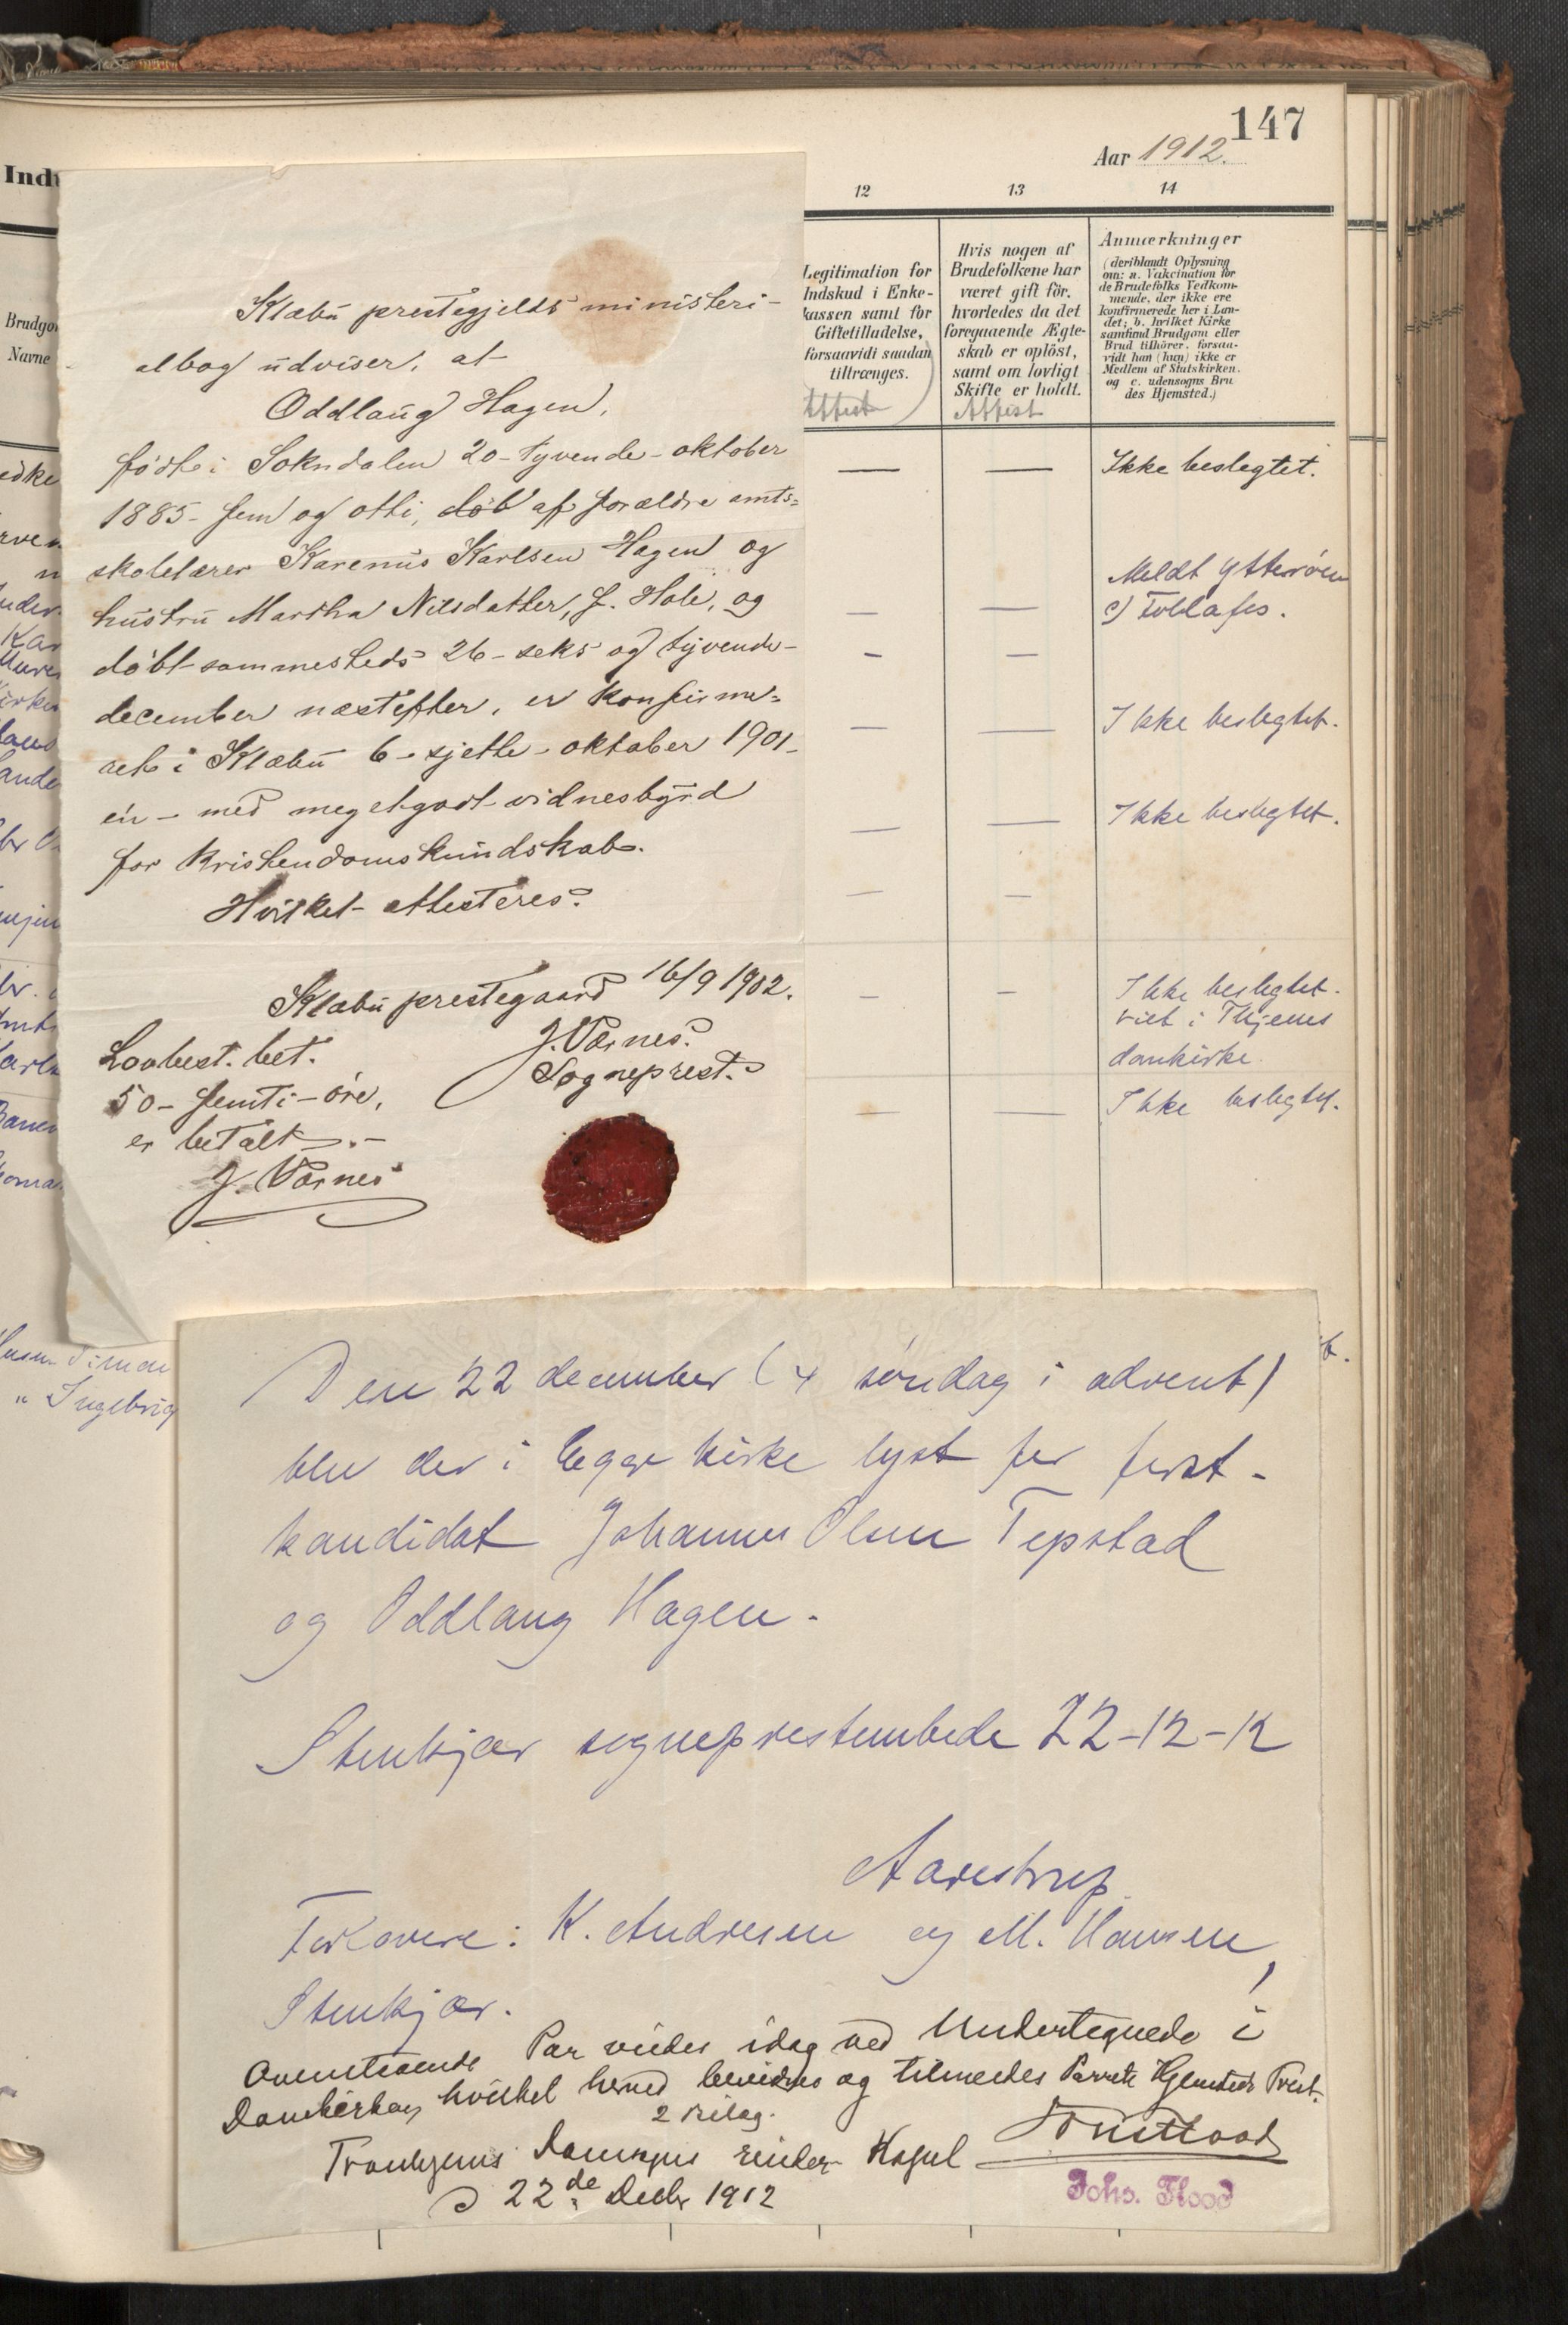 147
Aar 1912.
12
13
14
Legitimation for
Indskud i Enke-
kassen samt for
Giftetilladelse,
forsaavidt saadan
tiltrænges.
Attest
Hvis nogen af
Brudefolkene har
været gift för.
hvorledes da det
foregaaende Ægte-
skab er oplöst,
samt om lovligt
Skifte er holdt.
Attest
Anmærkninger
(deriblandt Oplysning
om: a. Vakcination for
de Brudefolks Vedkom-
mende, der ikke ere
konfirmerede her i Lan-
det; b. hvilket Kirke
samfund Brudgom eller
Brud tilhörer. forsaa-
vidt han (hun) ikke er
Medlem af Statskirken.
og c. udensogns Bru
des Hjemsted.)
Ikke beslegtet.
Meldt Ytterøen
Ikke beslegtet.
Ikke beslegtet.
Ikke beslegtet.
viet i Thjems
domkirke.
Ikke beslegtet.
Brudgo
Navne
Klæbu prestegjelds ministeri-
albog udviser, at
Oddlaug Hagen,
født i Soknedalen 20- tyvende- oktober
1885- fem og otti, døb af forældre amts=
skolelærer Karenus Karlsen Hagen og
hustru Martha Nilsdatter, f. Hole, og
døbt sammesteds 26- seks og tyvende-
december næstefter, er konfirme=
ret i Klæbu 6- sjette- oktober 1901-
én- med meget godt vidnesbyrd
for kristendomskundskab.
Hvilket attesteres.
Klæbu prestegaard 16/9 1902.
J. Værnes.
Sogneprest.
Lovbest. bet.
50- femti- øre,
er betalt.-
J. Værnes
Den 22 december (4 søndag i advent)
blev der i Egge kirke lyst for forst-
kandidat Johannes Olsen Tepstad
og Oddlaug Hagen.
Stenkjær sogneprestembede 22-12-12
Aarestrup
Forlovere: K. Andresen og M. Hansen,
Stenkjær.
Ovenstaaende Par viedes idag ved Undertegnede i
Domkirken, hvilket herved bevidnes og tilmeldes Parrets Hjemsteds Prest.
2 Bilag.
Trondhjems Domsogns resider. Kapel
d 22de Decbr 1912
Johs. Flood